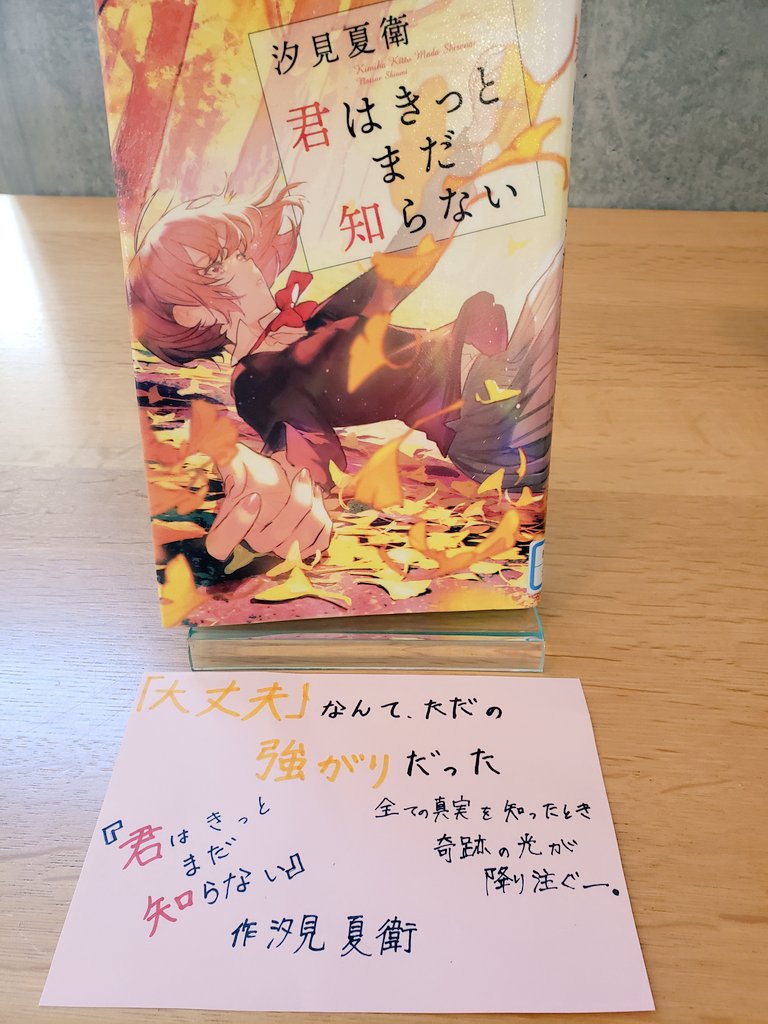 汐見夏衛
Kimiha Kitto Mada Shiranai
Natsue Shiomi
君はきっと
まだ
知らない
「大丈夫」なんて、ただの
強がりだった
全ての真実を知ったとき
奇跡の光が
降り注ぐー。
『君はきっと
まだ
知らない』
作汐見夏衛